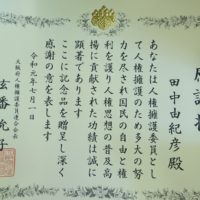 感謝状
田中由紀彦殿
あなたは人権擁護委員とし
て人権擁護のため多大の努
力を尽され国民の自由と権
利を護り人権思想の普及高
揚に貢献された功績は誠に
顕著であります
ここに記念品を贈呈し深く
感謝の意を表します
令和元年七月一日
大阪府人権擁護委員連合会会長
玄番允子